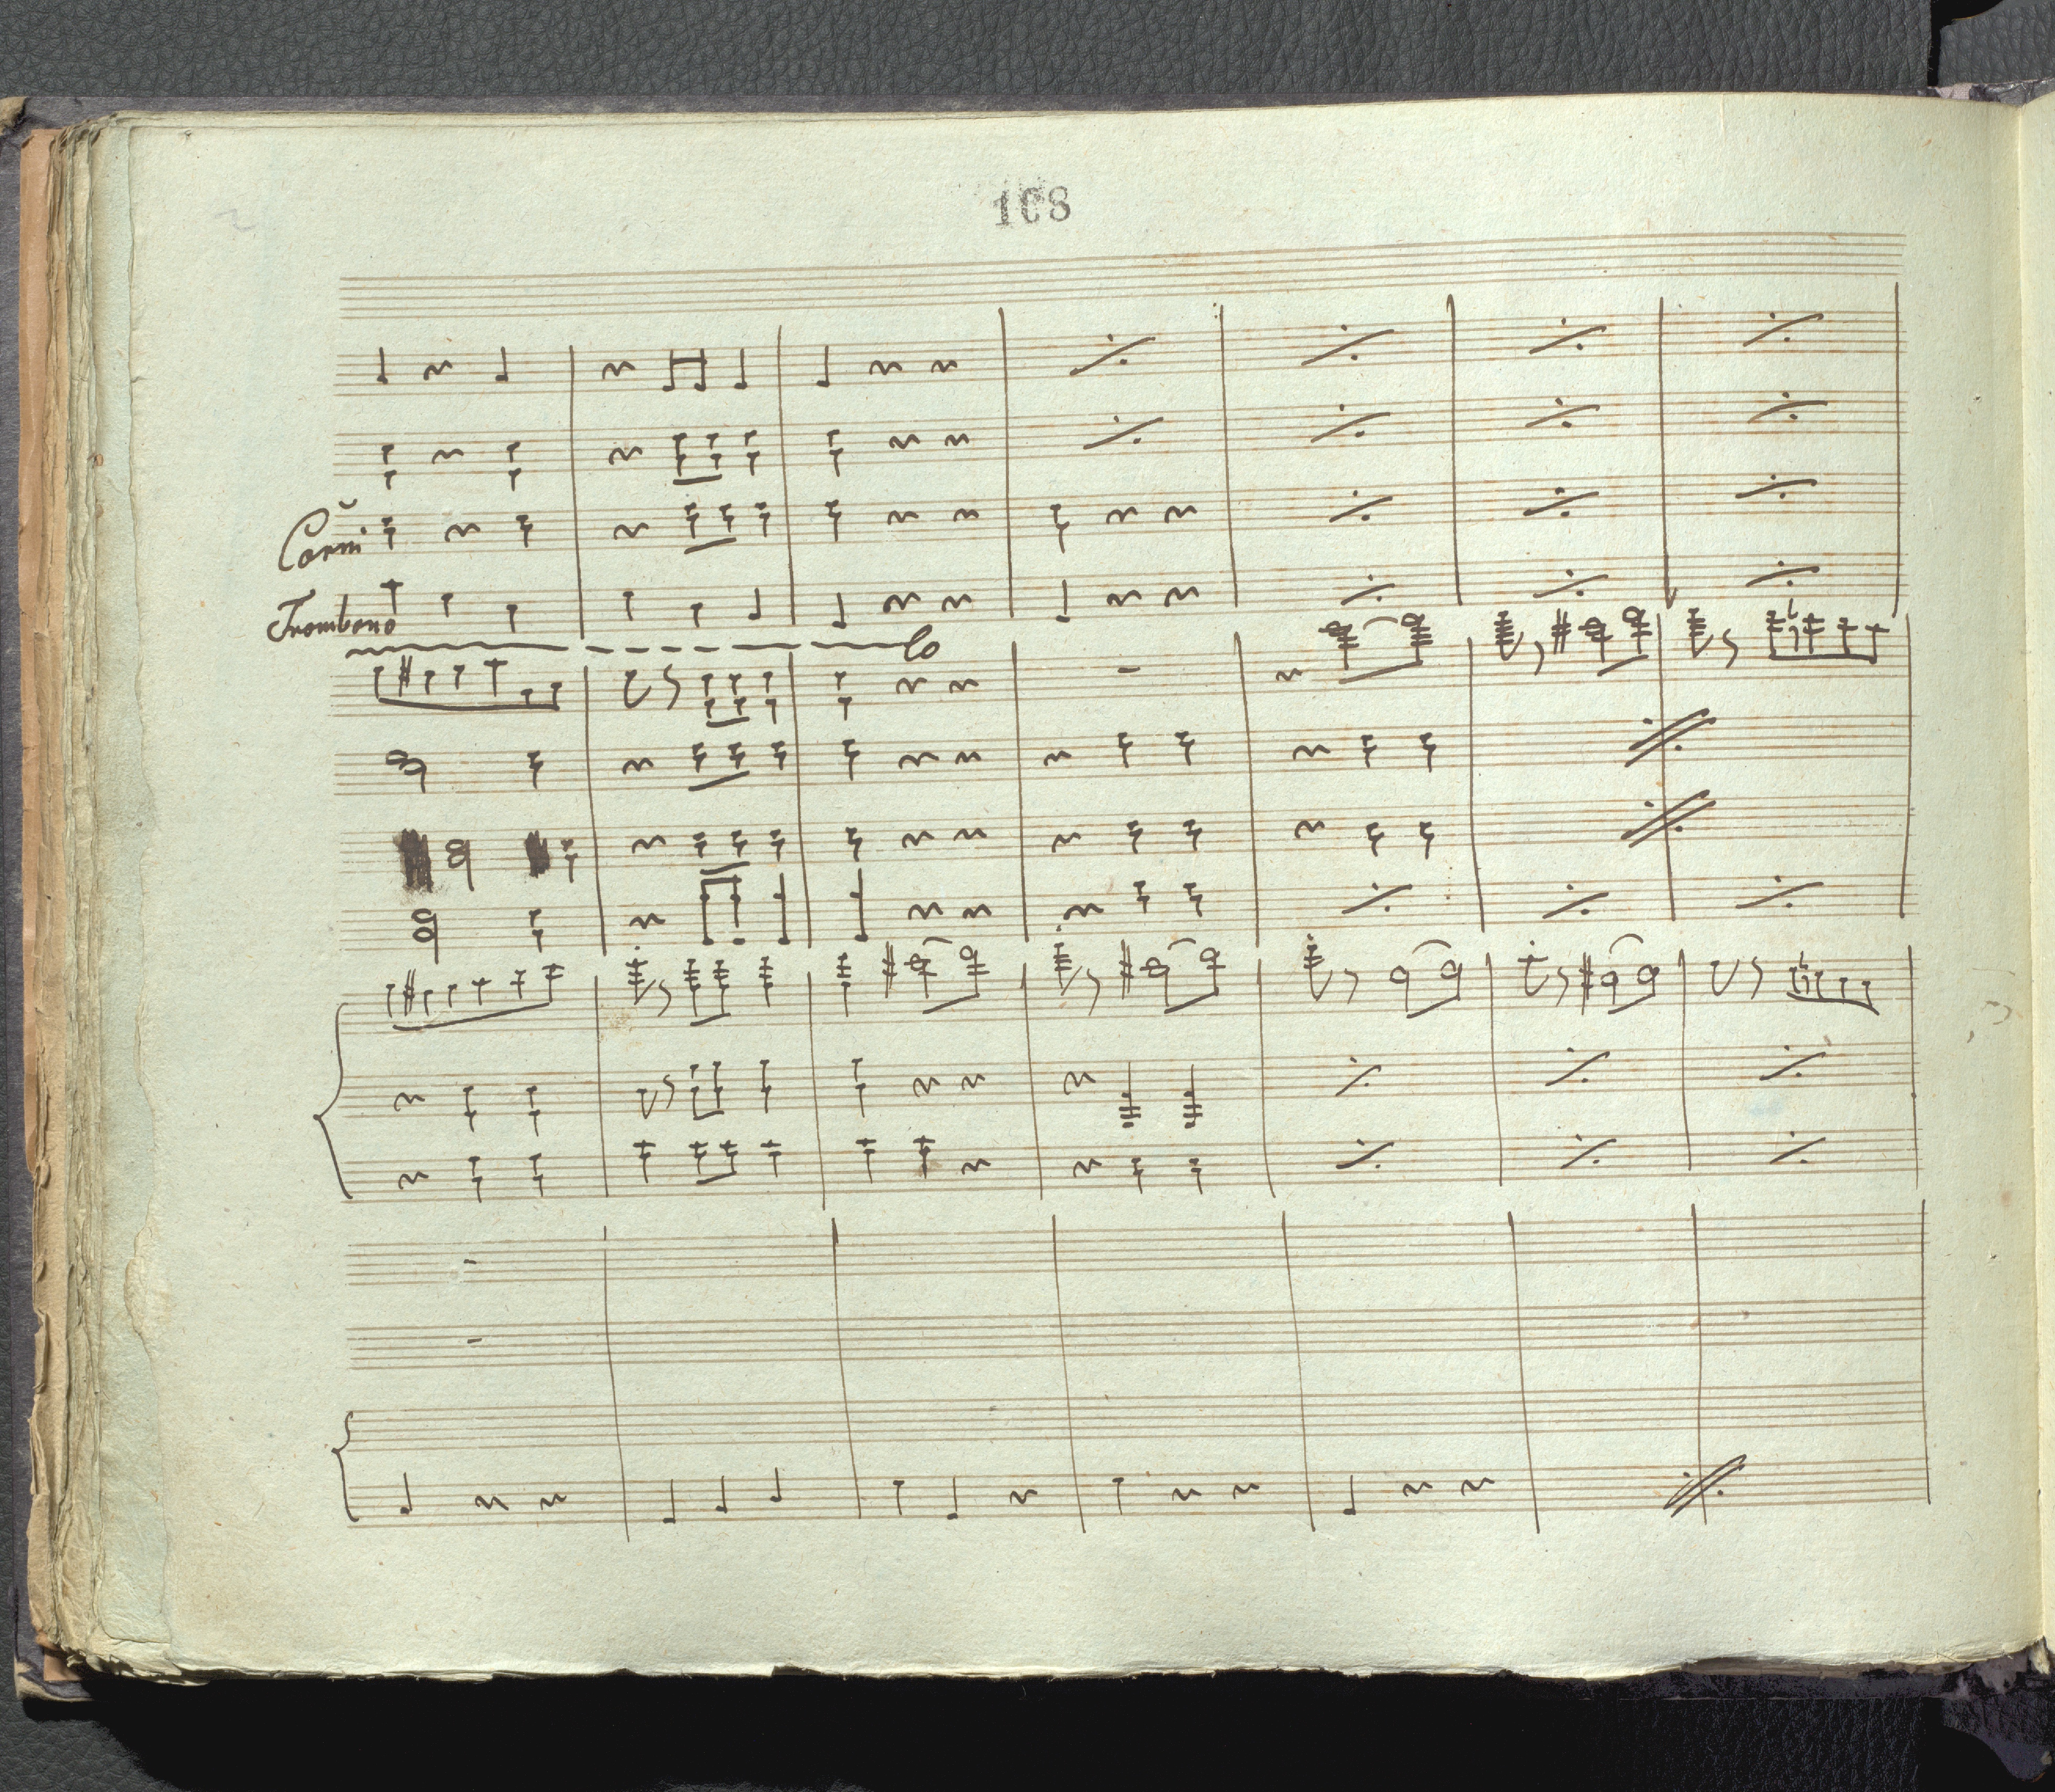 168
Corni
Trombono